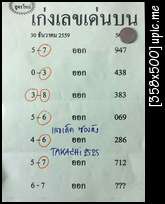 สูตรใหม่
เก่งเลขเด่นบน
30 ธันวาคม 2559
5 - 7 ออก 947
0 - 3 ออก 438
3 - 8 ออก 383
5 - 6 ออก 069
4 - 6 ออก 286
TAKACHI 2525
5 - 7 ออก 712
6 - 7 ออก ???
[358x500] upic.me